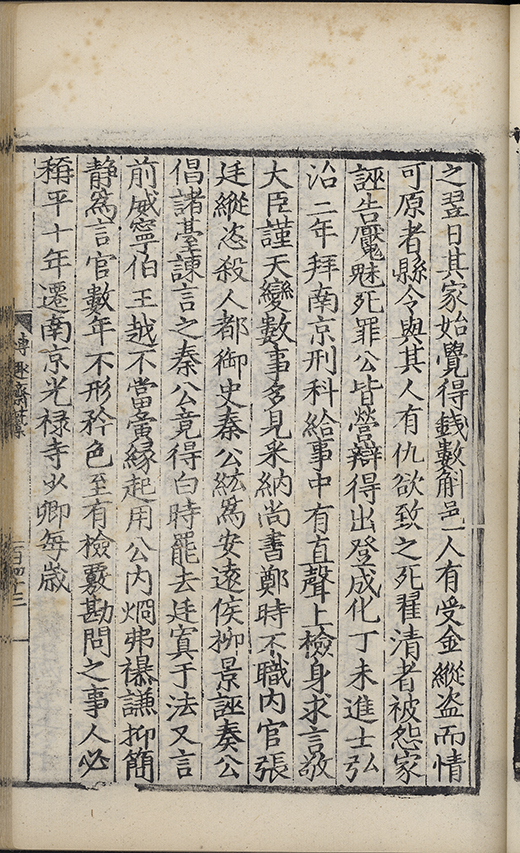 之翌日其家始覺得錢數斛邑一人有受金縱盜而情
可原者縣令與其人有仇欲致之死翟清者被怨家
誣告魘魅死罪公皆營辯得出登成化丁未進士弘
治二年拜南京刑科給事中有直聲上檢身求言敬
大臣謹天變數事多見采納尚書鄭時不職內官張
廷縱恣殺人都御史秦公紘爲安遠侯柳景誣奏公
倡諸臺諫言之秦公竟得白時罷去廷寘于法又言
前威寧伯王越不當夤緣起用公内烱弗襮謙抑簡
静爲言官數年不形矜色至有檢覈勘問之事人必
稱平十年遷南京光禄寺少卿每歲
博趣齋藁